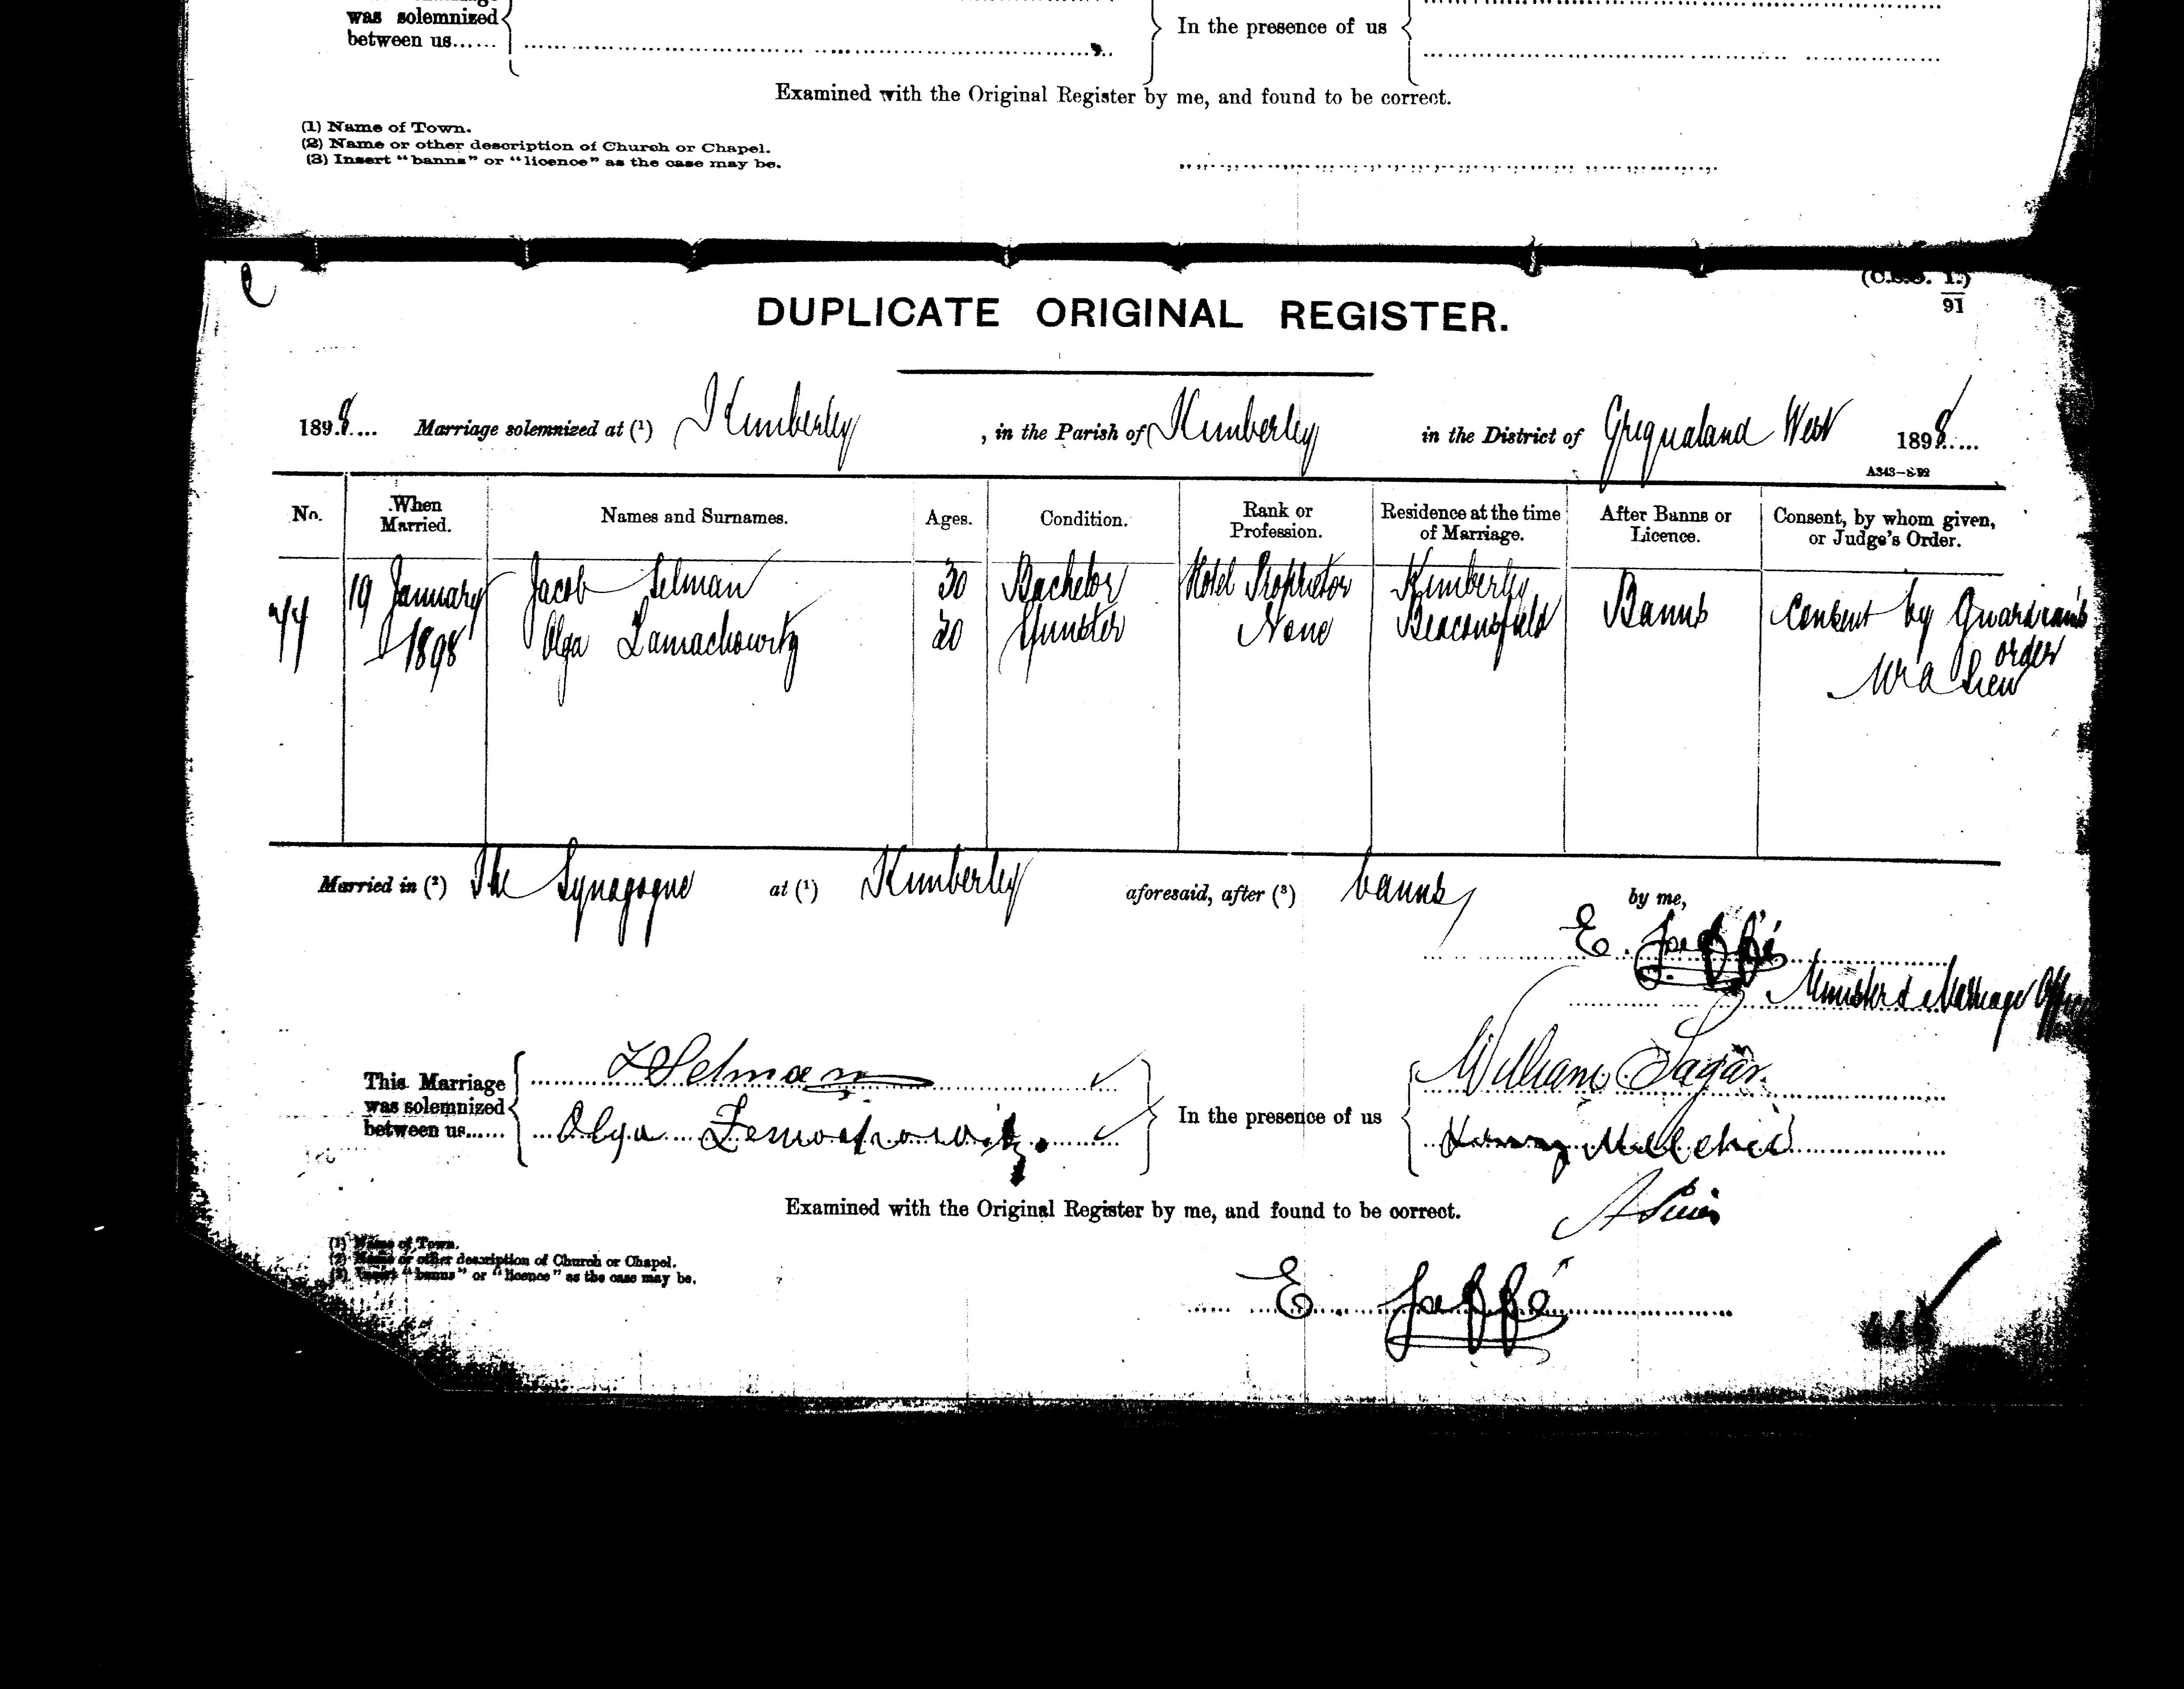 was solemnized
between us......
In the presence of us
Examined with the Original Register by me, and found to be correct.
(1) Name of Town.
(2) Name or other description of Church or Chapel.
(3) Insert "banns" or "licence" as the case may be.
91
DUPLICATE ORIGINAL REGISTER.
1898.... Marriage solemnized at (1) Kimberley, in the Parish of Kimberley in the District of Griqualand West 1898.....
No. When Married. Names and Surnames. Ages. Condition. Rank or Profession. Residence at the time of Marriage. After Banns or Licence. Consent, by whom given, or Judge's Order.
19 January Jacob Selman 30 Bachelor Hotel Proprietor Kimberley Banns Consent by Guardian's
1898 Olga Zamachowitz 20 Spinster None Beaconsfield order
Mr A
Married in (2) The Synagogue at (1) Kimberley aforesaid, after (3) banns, by me,
E. Jaffé
Minister & Marriage
This Marriage was solemnized between us......
Selman
Olga
In the presence of us
William Sagar
Examined with the Original Register by me, and found to be correct.
(1) Name of Town.
(2) Name or other description of Church or Chapel.
(3) Insert "banns" or "licence" as the case may be.
E. Jaffé